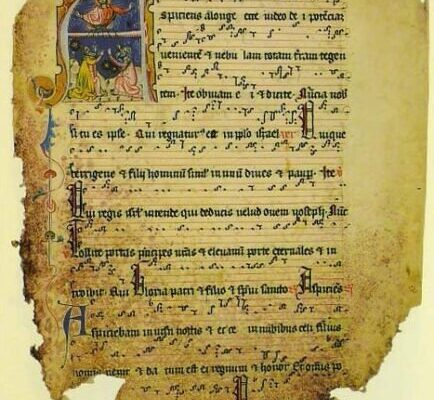 spiciens alonge ecce video dei potēciaz
venientē et nebulam totam terram tegen
tem Ite obviam ei et dicite Nūcia nob
si tu es ipse Qui regnaturus es in pplo israel Quique
terrigene et filij hominū simul in unū dives et paup Ite
Qui regis isrl intende qui deducis velud ovem yoseph Nūc
Tollite portas principes vras et elevamī porte eternales et in
troibit Qui Gloria patri et filio et spiui sancto Aspiciēs
Aspiciebam in visu noctis et ecce in nubibus celi filius
hominis venit et datum est ei regnum et honor Et omnis po